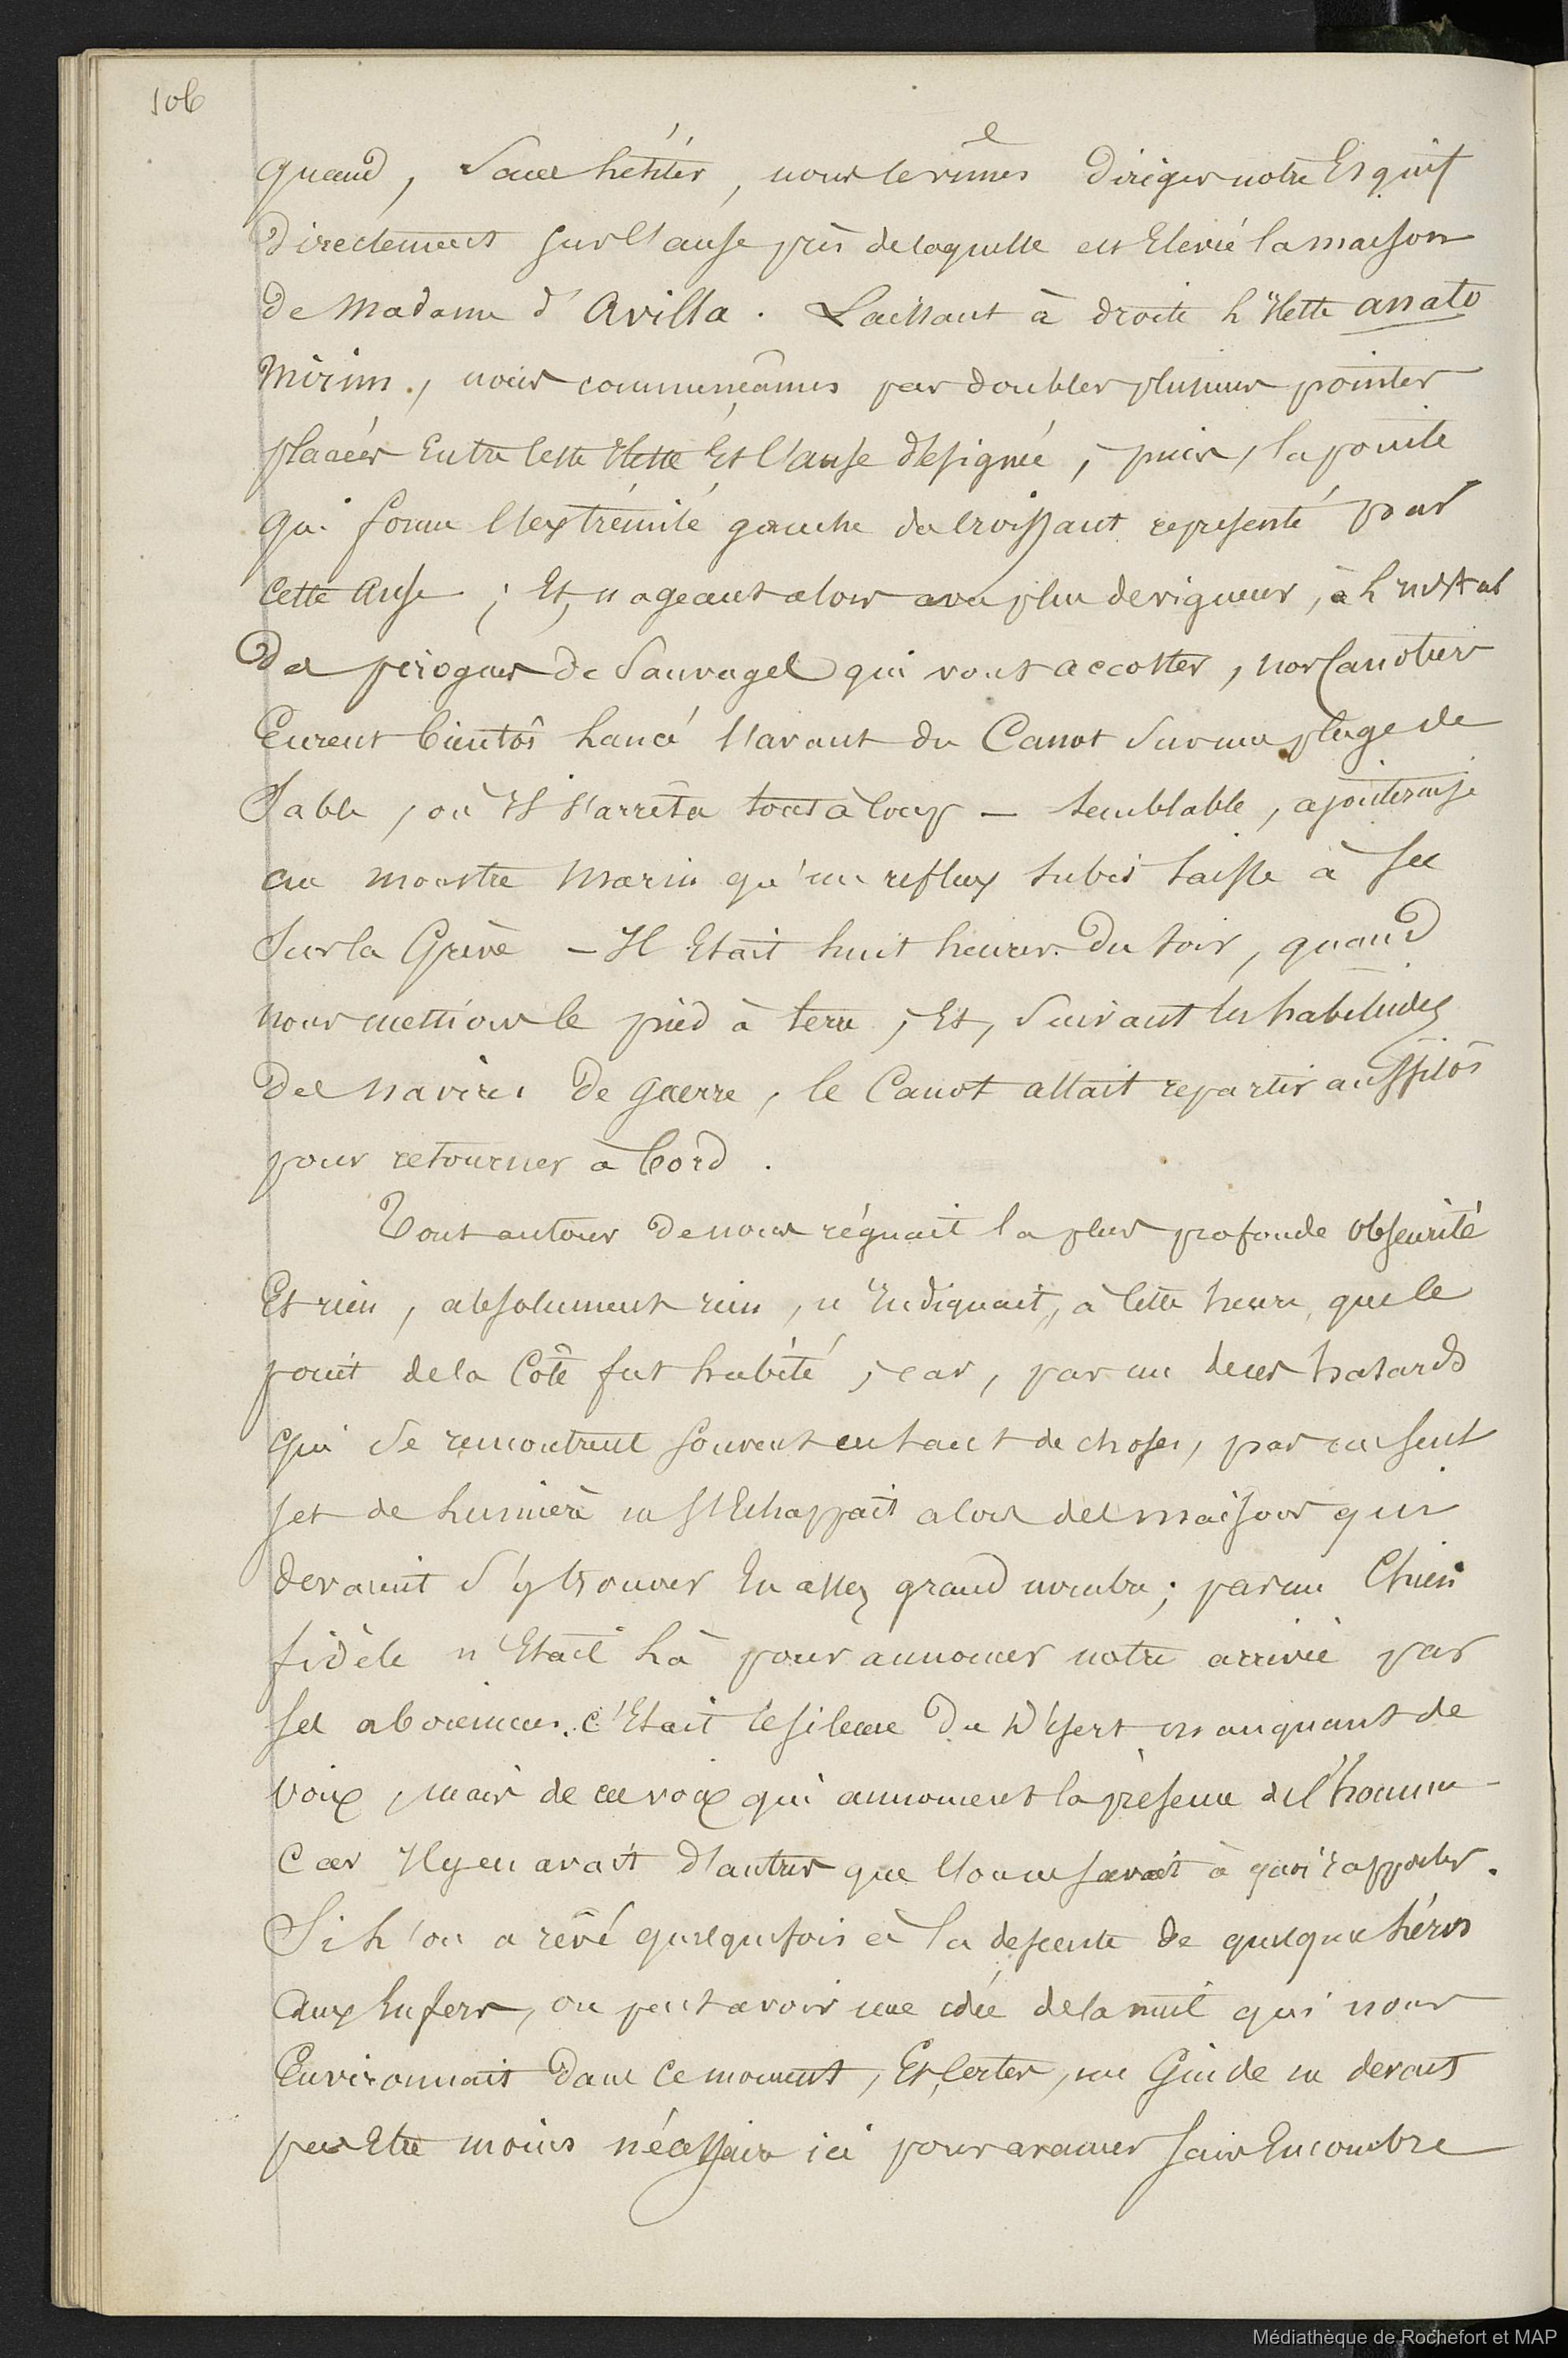 106
quand, sans hésiter, nous le vîmes diriger notre Esquif
directement sur l'anse près de laquelle est Elevée la maison
de Madame d'Avilla. Laissant à droite l'Ilette arrato
mirim, nous commençâmes par doubler plusieurs pointes
placées Entre cette Ilette Et l'anse désignée, puis, la pointe
qui forme l'extrémité gauche du croissant représenté par
cette anse ; Et, nageant alors avec plus de vigueur, à l'instar
des pirogues de Sauvages qui vont accoster, nos Canotiers
Eurent bientôt lancé l'avant du Canot sur une plage de
Sable, où Il s'arrêta tout à coup — semblable, ajouterai-je
au monstre marin qu'un reflux subit laisse à sec
sur la Grève — Il Etait huit heures du soir, quand
nous mettions le pied à terre ; Et, suivant les habitudes
des navires de guerre, le Canot allait repartir aussitôt
pour retourner à bord.
Tout autour de nous régnait la plus profonde obscurité
Et rien, absolument rien, n'Indiquait, à cette heure, que le
point de la Côte fut habité ; car, par un de ces hasards
qui se rencontrent souvent en tant de choses, pas un seul
jet de lumière ne s'Echappait alors des maisons qui
devaient s'y trouver En assez grand nombre ; pas un Chien
fidèle n'Etait là pour annoncer notre arrivée par
ses aboiemens. C'Etait le silence du Désert manquant de
voix, mais de ces voix qui annoncent la présence de l'homme -
Car Il y en avait d'autres que l'on ne savait à quoi rapporter.
Si l'on a rêvé quelquefois à la descente de quelque héros
aux Enfers, on peut avoir une idée de la nuit qui nous
Environnait dans ce moment, Et, Certes, un Guide ne devait
pas Etre moins nécessaire ici pour avancer sans Encombre
Médiathèque de Rochefort et MAP